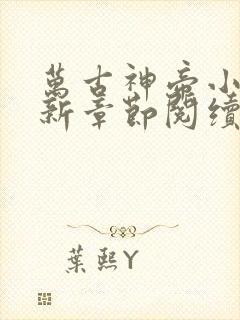 萬古神帝小
新章節閱續
葉熙Y